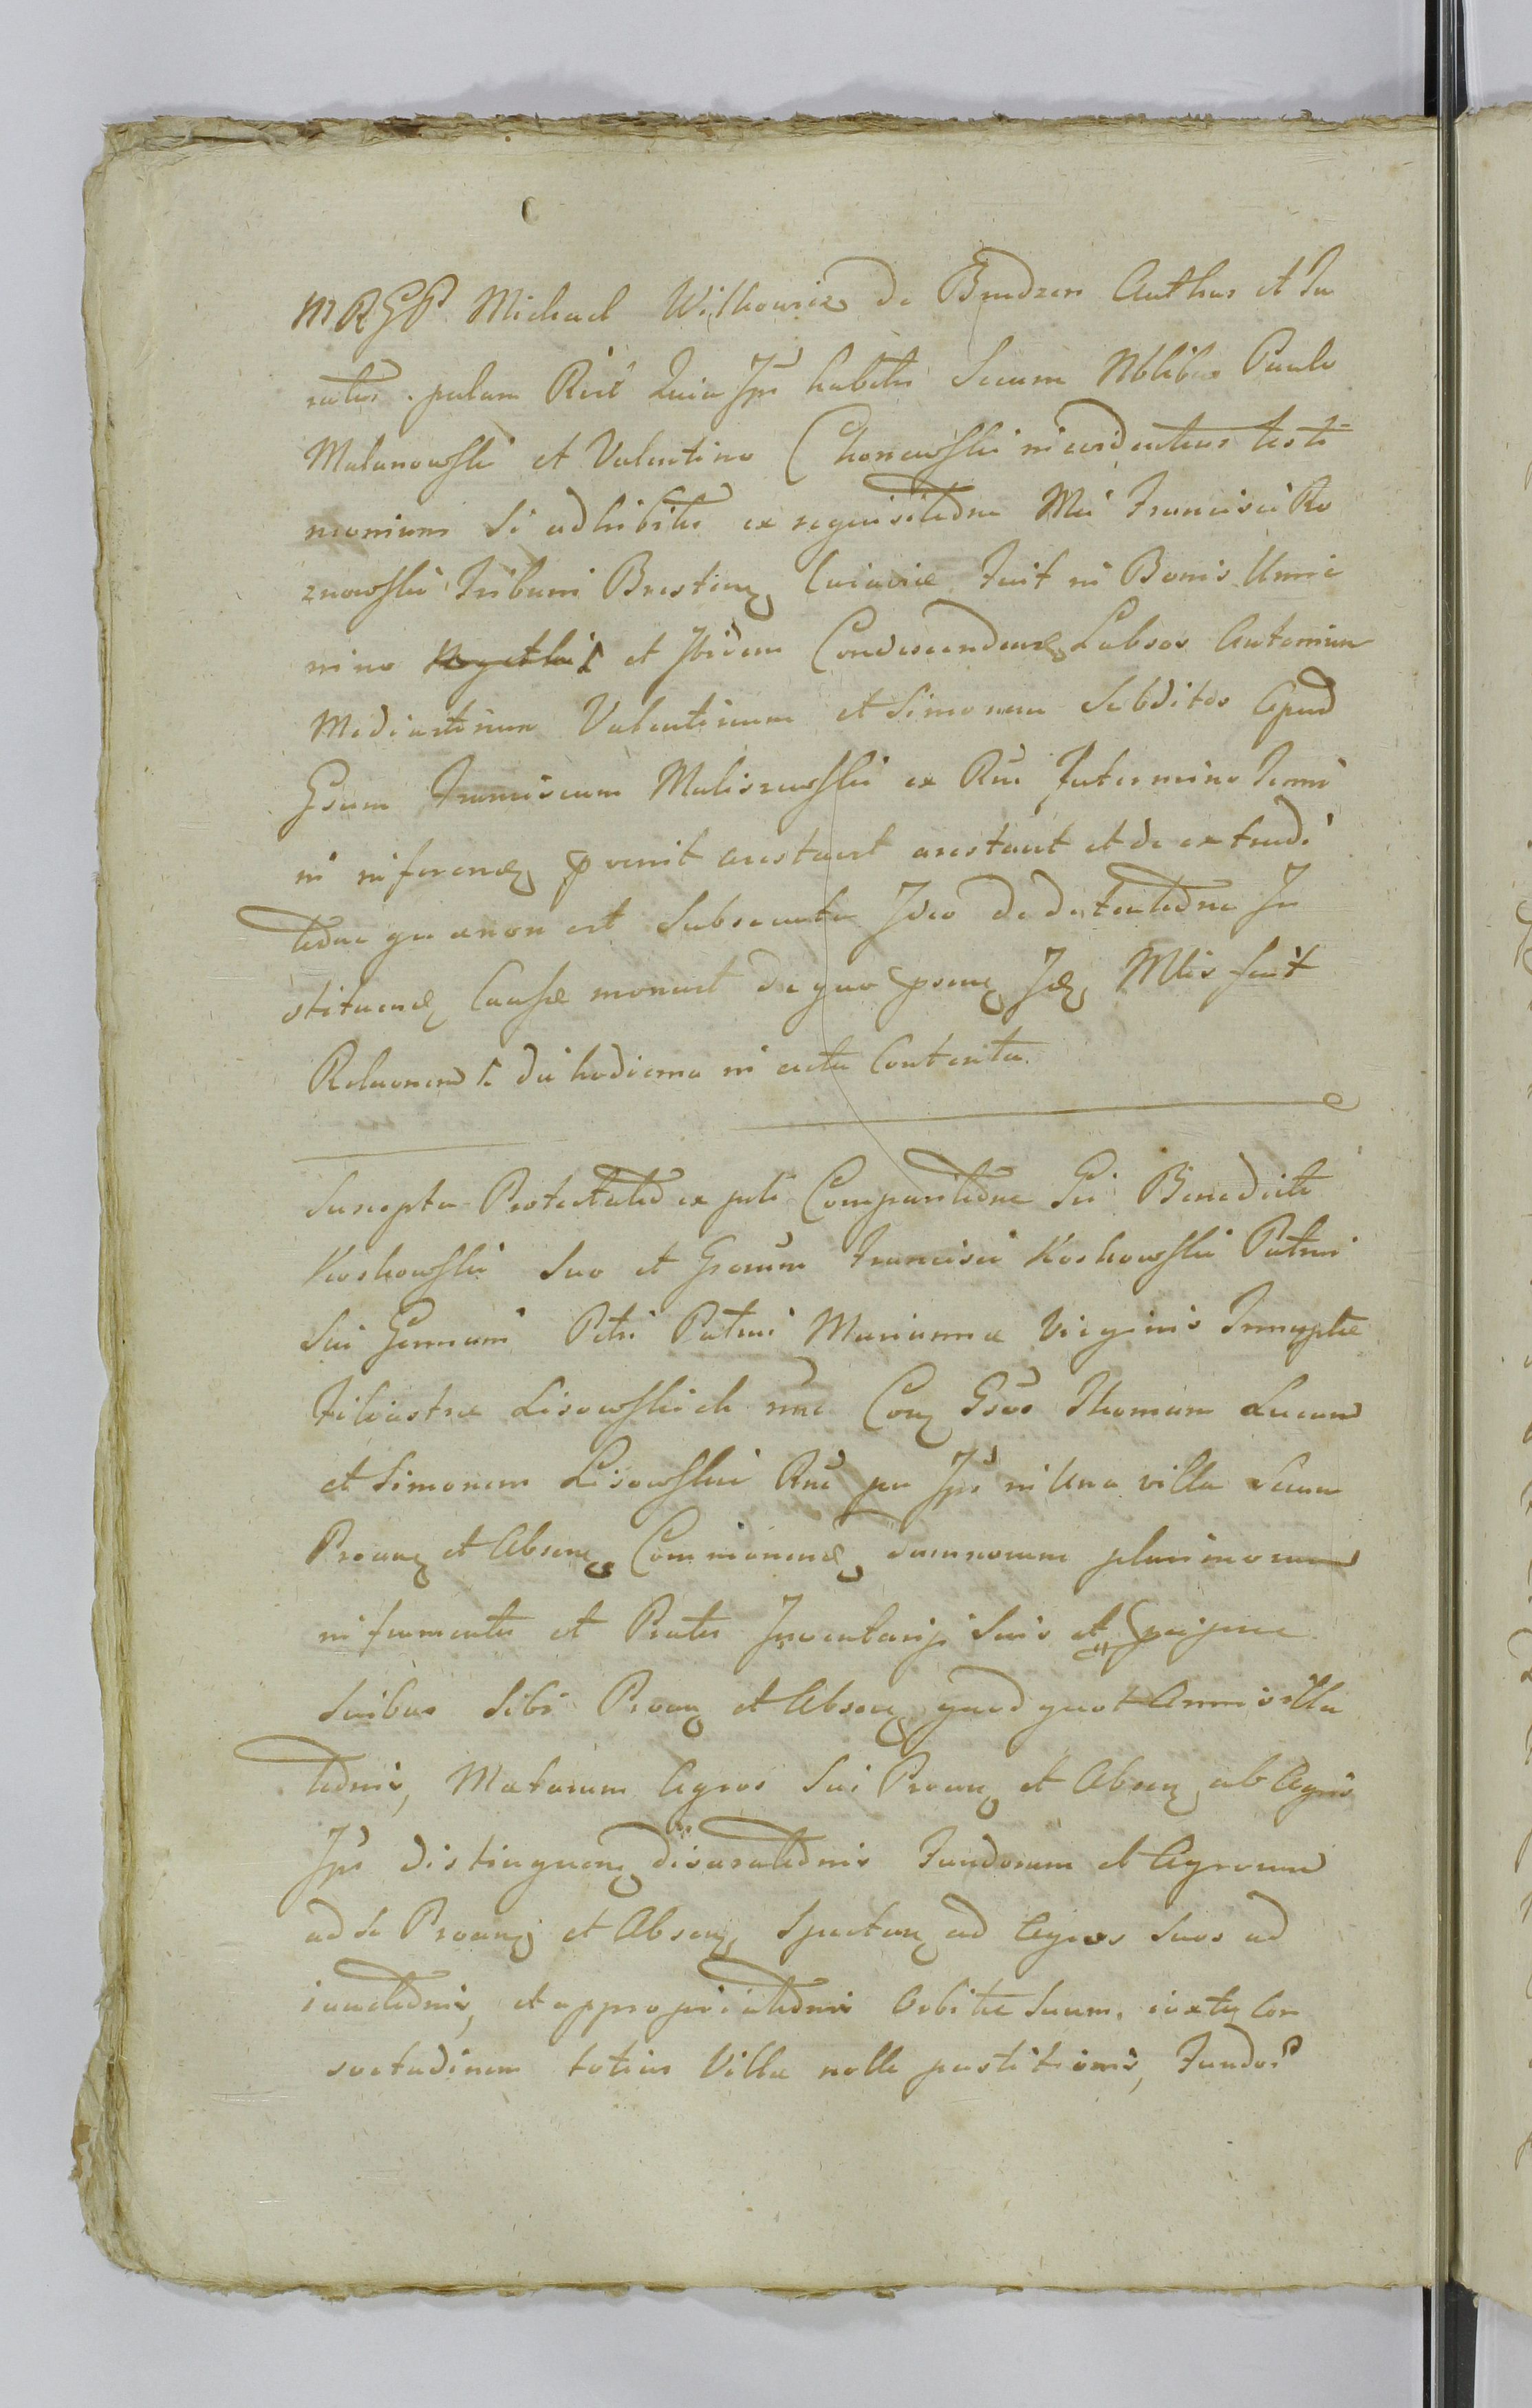 MRGP Michael Wilkowicz de Brudzen Authus et Ju
ratus palam Rēt Quia Jps habitis Secum Nblibus Paulo
Malanowski et Valentino Chonowski in evidentius testi
monium Si adhibitis ex requisitedne Mci Francisci Ro
znowski Tribuni Brestien Cuiavie Fuit in Bonis Unie
mino et Ibidem Condescenden Labsos Antonium
Mediastinum Valentinum et Simonem Subditos Apud
Gsum Franciscum Maliszewski ex Rne Intermino Termi
ni inferen pvenit arestavit arestavit et de extradi
tedne quænon est Subsecuta Ideo de detentedne In
stituend Causæ monuit de quo psens Mtis fecit
Relaonem S. die hodierna in acta Contenta.
Suscepta Protestated ex pte Comparitedne Gsi Benedicti
Koskowski Suo et Gsorum Francisci Koskowski Patrui
Sui Germani Petri Patrui Mariannæ Virginis Innuptæ
Filiastræ Lisowskich nnē Con Gsos Thomam Lucam
et Simonem Lisowski Rne per Jps in Una villa Secum
Proan et Absen Commoran damnorum plurimorum
in frumentis et Pratis Inventarijs Suis et
Suibus Sibi Proan et Absen quod quot Annis illa
tednis, Metarum Agros Sui Proan et Absen ab Agris
Jps distinguen disaratednis Fundorum et Agrorum
ad Se Proan et Absen Spectan ad Agros Suos ad
iunctednis, et appropriatednis Orbitæ Suum iuxta Con
svetudinem totius Villæ nolle pastitionis, Fundos